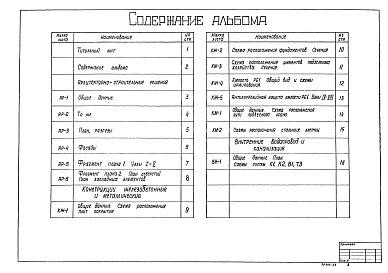 Содержание альбома
Марка листа
Наименование
№ стр.
Титульный лист
1
Содержание альбома
2
Архитектурно-строительные решения
АР-1 Общие данные 3
АР-2 То же 4
АР-3 План, разрезы 5
АР-4 Фасады 6
АР-5 Фрагмент плана 1. Узлы I÷V 7
АР-6 Фрагмент плана 2. План отверстий
План закладных элементов 8
Конструкции железобетонные
и металлические
КЖ-1 Общие данные. Схема расположения
плит покрытия 9
Марка листа
Наименование
№ стр.
КЖ-2 Схема расположения фундаментов. Сечения 10
КЖ-3 Схема расположения элементов подземного
хозяйства. Сечения 11
КЖ-4 Емкость РЕ1. Общий вид и схемы
армирования 12
КЖ-5 Антикоррозийная защита емкости РЕ1. 13
КМ-1 Общие данные. Схема расположения
пути подвесного крана 14
КМ-2 Схема расположения стальных щитов 15
Внутренние водопровод и
канализация
ВК-1 Общие данные. План
Схемы систем К1, К2, В1, Т3 16
Привязан